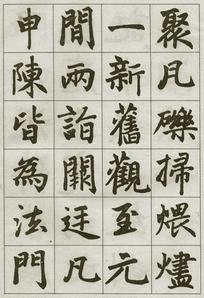 聚凡礫掃煨燼
一新舊觀至元
間兩詣闕廷凡
申陳皆為法門